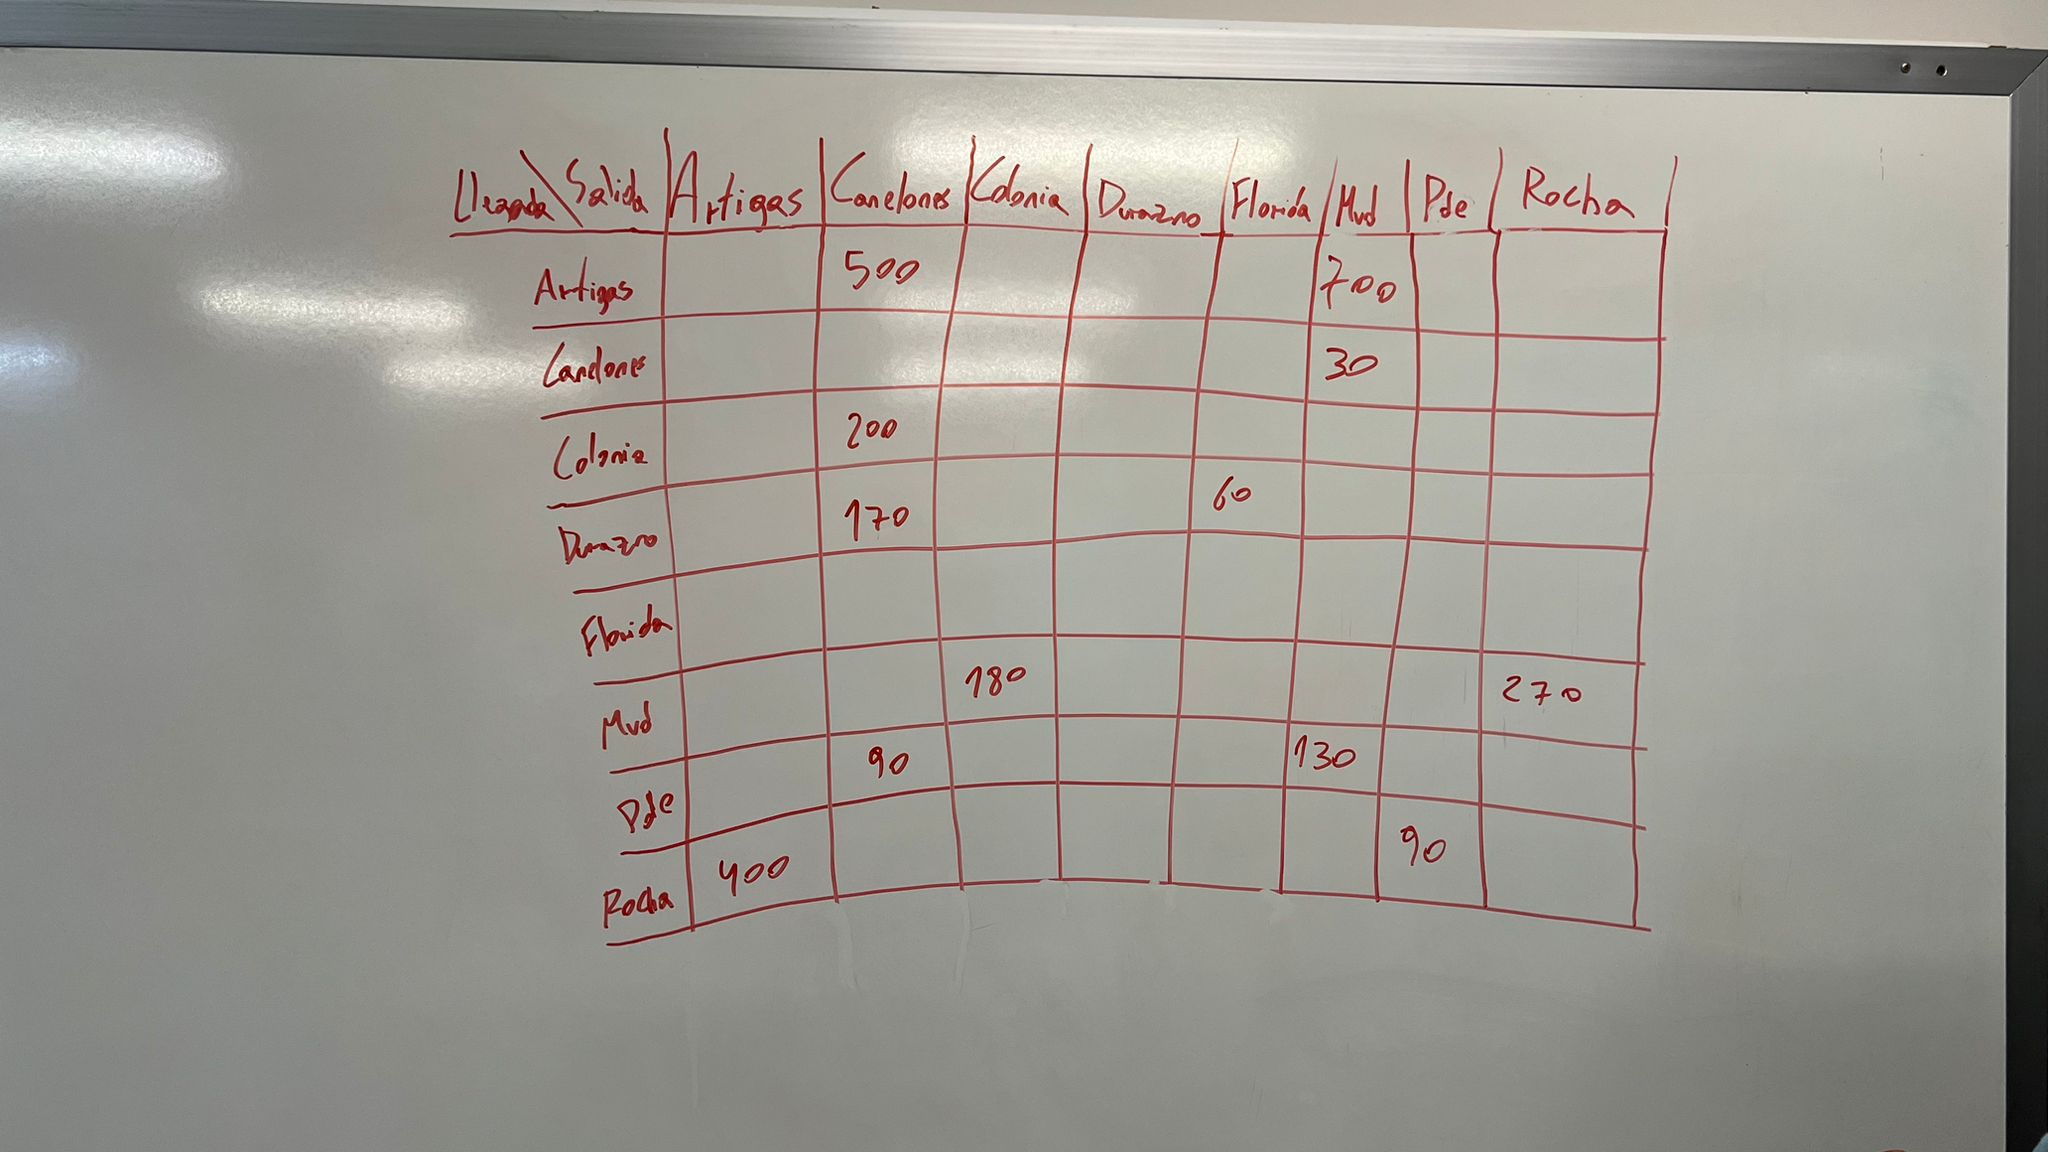 Llegada\Salida Artigas Canelones Colonia Durazno Florida Mvd Pde Rocha
Artigas 500 700
Canelones 30
Colonia 200
Durazno 170 60
Florida
Mvd 180 270
Pde 90 130
Rocha 400 90